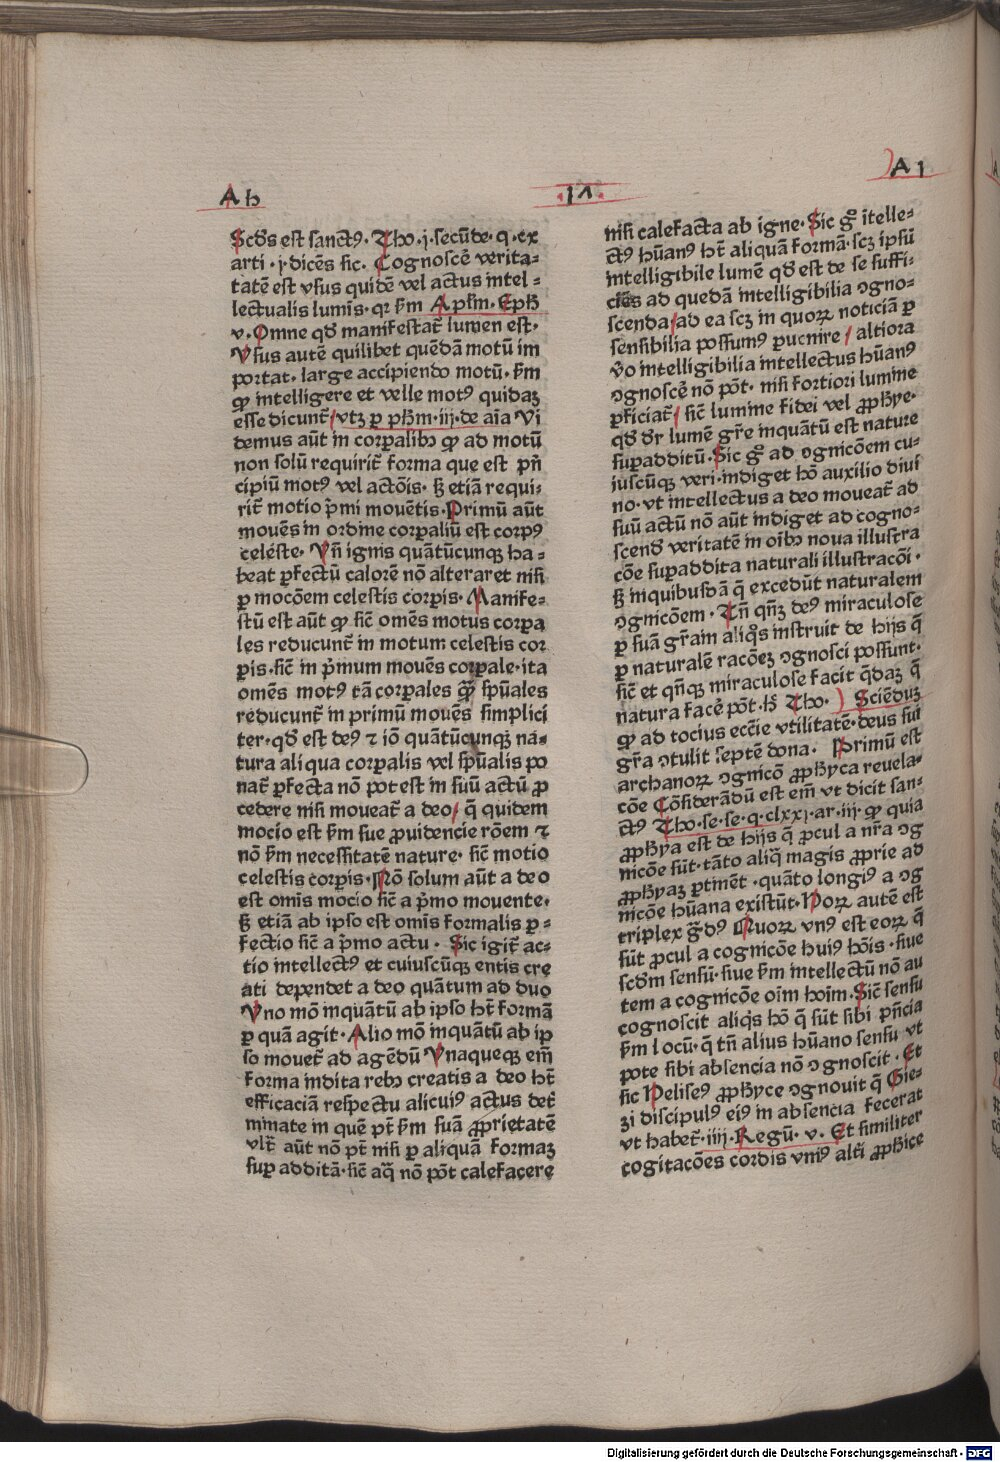 A h
·17·
A i
Scd̄s est sanctꝰ. Tho. j. secūde. q. cx
arti. j dicēs sic. Cognoscē verita-
tatē est vsus quidē vel actus intel-
lectualis lumīs. qꝛ ẜm Apl̄m. Eph̄
v. Omne qd̄ manifestat̄ lumen est.
Vsus autē quilibet quēdā motū im
portat. large accipiendo motū. ẜm
ꝙ intelligere et velle motꝰ quidaꝫ
esse dicunt̄ / vtꝫ ꝑ ph̄m. iij. de aīa Vi
demus aūt in corꝑalibꝫ ꝙ ad motū
non solū requirit̄ forma que est pn̄
cipiū motꝰ vel actōis. ꝫ etiā requi-
rit̄ motio p̄mi mouētis. Primū aūt
mouēs in ordine corꝑaliū est corpꝰ
celeste. Vn̄ ignis quātūcunqꝫ ha-
beat ꝑfectū calorē nō alteraret nisi
ꝑ mocōem celestis corꝑis. Manife-
stū est aūt ꝙ sic̄ omēs motus corꝑa
les reducunt̄ in motum celestis cor
ꝑis. sic̄ in p̄mum mouēs corꝑale. ita
omēs motꝰ tā corꝑales ꝙ̄ sp̄uales
reducunt̄ in primū mouēs simplici
ter. qd̄ est deꝰ ⁊ iō quātūcunqꝫ na-
tura aliqua corꝑalis vel sp̄ualis po
nat̄ ꝑfecta nō pot est in suū actū ꝓ
cedere nisi moueat̄ a deo / q̄ quidem
mocio est ẜm sue ꝓuidencie rōem ⁊
nō ẜm necessitatē nature. sic̄ motio
celestis corꝑis. Nō solum aūt a deo
est omīs mocio sic̄ a p̄mo mouente.
ꝫ etiā ab ipso est omīs formalis ꝑ-
fectio sic̄ a p̄mo actu. Sic igit̄ ac-
tio intellectꝰ et cuiuscūqꝫ entis cre
ati dependet a deo quātum ad duo
Vno mō inquātū ab ipso ht̄ formā
ꝑ quā agit. Alio mō inquātū ab ip
so mouet̄ ad agēdū Vnaqueqꝫ em̄
forma indita rebꝫ creatis a deo ht̄
efficaciā respectu alicuiꝰ actus det̄
minate in quē pt̄ ẜm suā ꝓprietatē
vlt̄ aūt nō pt̄ nisi ꝑ aliquā formaꝫ
suꝑ additā. sic̄ aq̄ nō pōt calefacere
nisi calefacta ab igne. Sic gͦ ītelle-
ctꝰ hūanꝰ ht̄ aliquā formā. scꝫ ipsū
intelligibile lumē qd̄ est de se suffi-
ciēs ad quedā intelligibilia ꝯgno-
scenda / ad ea scꝫ in quoꝝ noticiā ꝑ
sensibilia possumꝰ ꝑuenire / altiora
v̄o intelligibilia intellectus hūanꝰ
ꝯgnoscē nō pōt. nisi fortiori lumine
ꝑficiat̄ / sic̄ lumine fidei vel ꝓphye.
qd̄ dr̄ lumē gr̄e inquātū est nature
suꝑadditū. Sic gͦ ad ꝯgnicōem cu-
iuscūqꝫ veri. indiget hō auxilio diui
no. vt intellectus a deo moueat̄ ad
suū actū nō aūt indiget ad cogno-
scend̄ veritatē in oībꝫ noua illustra
cōe suꝑaddita naturali illustracōi.
ꝫ in quibusdā q̄ excedūt naturalem
ꝯgnicōem. Tn̄ qn̄qꝫ deꝰ miraculose
ꝑ suā gr̄am aliq̄s instruit de hijs q̄
ꝑ naturalē racōeꝫ ꝯgnosci possunt.
sic̄ et qn̄qꝫ miraculose facit q̄daꝫ q̄
natura facē pōt. h̄ Tho. ) Sciēduꝫ
ꝙ ad tocius eccīe vtilitatē. deus sui
gr̄a ꝯtulit septē dona. Primū est
archanoꝝ ꝯgnicō ꝓphyca reuela-
cōe Cōsiderādū est em̄ vt dicit san-
ctꝰ Tho. se. se. q. clxxj. ar. iij. ꝙ quia
ꝓphya est de hijs q̄ ꝓcul a nr̄a ꝯg
nicōe sūt. tāto aliq̄ magis ꝓprie ad
ꝓphyaꝫ ꝑtinēt. quāto longiꝰ a ꝯg
nicōe hūana existūt. Hoꝝ autē est
triplex gͣdꝰ Quoꝝ vnꝰ est eoꝝ q̄
sūt ꝓcul a cognicōe huiꝰ hōis. siue
scd̄m sensū. siue ẜm intellectū nō au
tem a cognicōe oīm hoīm. Sic̄ sensu
cognoscit aliq̄s hō q̄ sūt sibi pn̄cia
ẜm locū. q̄ tn̄ alius hūano sensu vt
pote sibi absencia nō ꝯgnoscit. Et
sic Heliseꝰ ꝓphyce ꝯgnouit q̄ Gie-
zi discipulꝰ eiꝰ in absencia fecerat
vt habet̄. iiij. Regū. v. Et similiter
cogitacōes cordis vniꝰ alt̄i ꝓphice
Digitalisierung gefördert durch die Deutsche Forschungsgemeinschaft - DFG